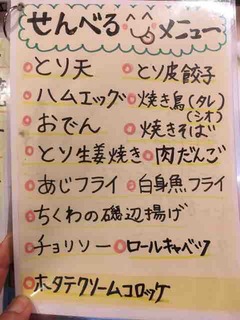 せんべろ メニュー
とり天 とり皮餃子
ハムエッグ 焼き鳥(タレ)(シオ)
おでん 焼きそば
とり生姜焼き 肉だんご
あじフライ 白身魚フライ
ちくわの磯辺揚げ
チョリソー ロールキャベツ
ホタテクリームコロッケ